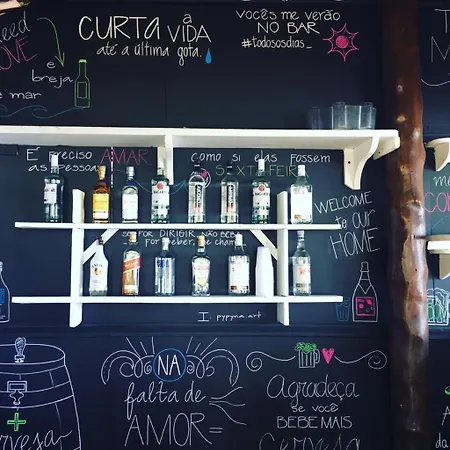 need
MOVE
e breja
e mar
CURTA à VIDA
até a última gota.
VOCÊS ME VERÃO
NO BAR
#todososdias_
É preciso AMAR
as pessoas
como si elas fossem
SEXTA-FEIRA
DIRIGIR NÃO BEBA
por beber, me chame
WELCOME
to our
HOME
I. pypyna.art
NA
falta de
AMOR
Agradeça
se você
BEBE MAIS
Cerveja
+
Cerveja